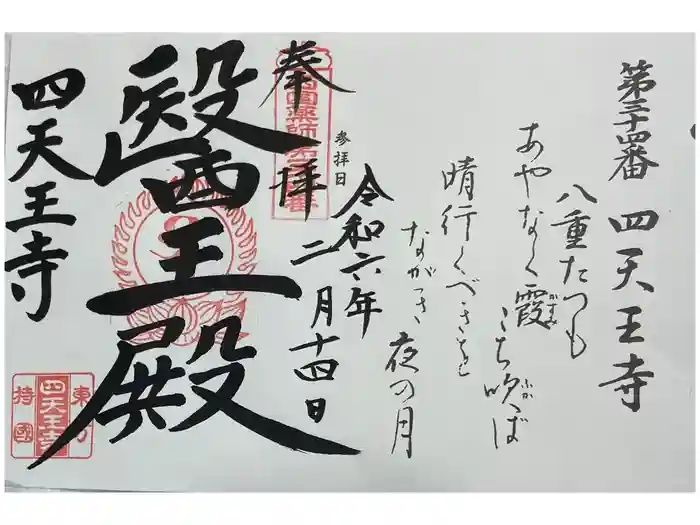 第三十四番 四天王寺
八重たつも
あやなく霞かすみ
こち吹ふかば
晴行くべきを
ながつき夜の月
参拝日
令和六年
二月十四日
奉拝
醫王殿
四天王寺
四天王寺